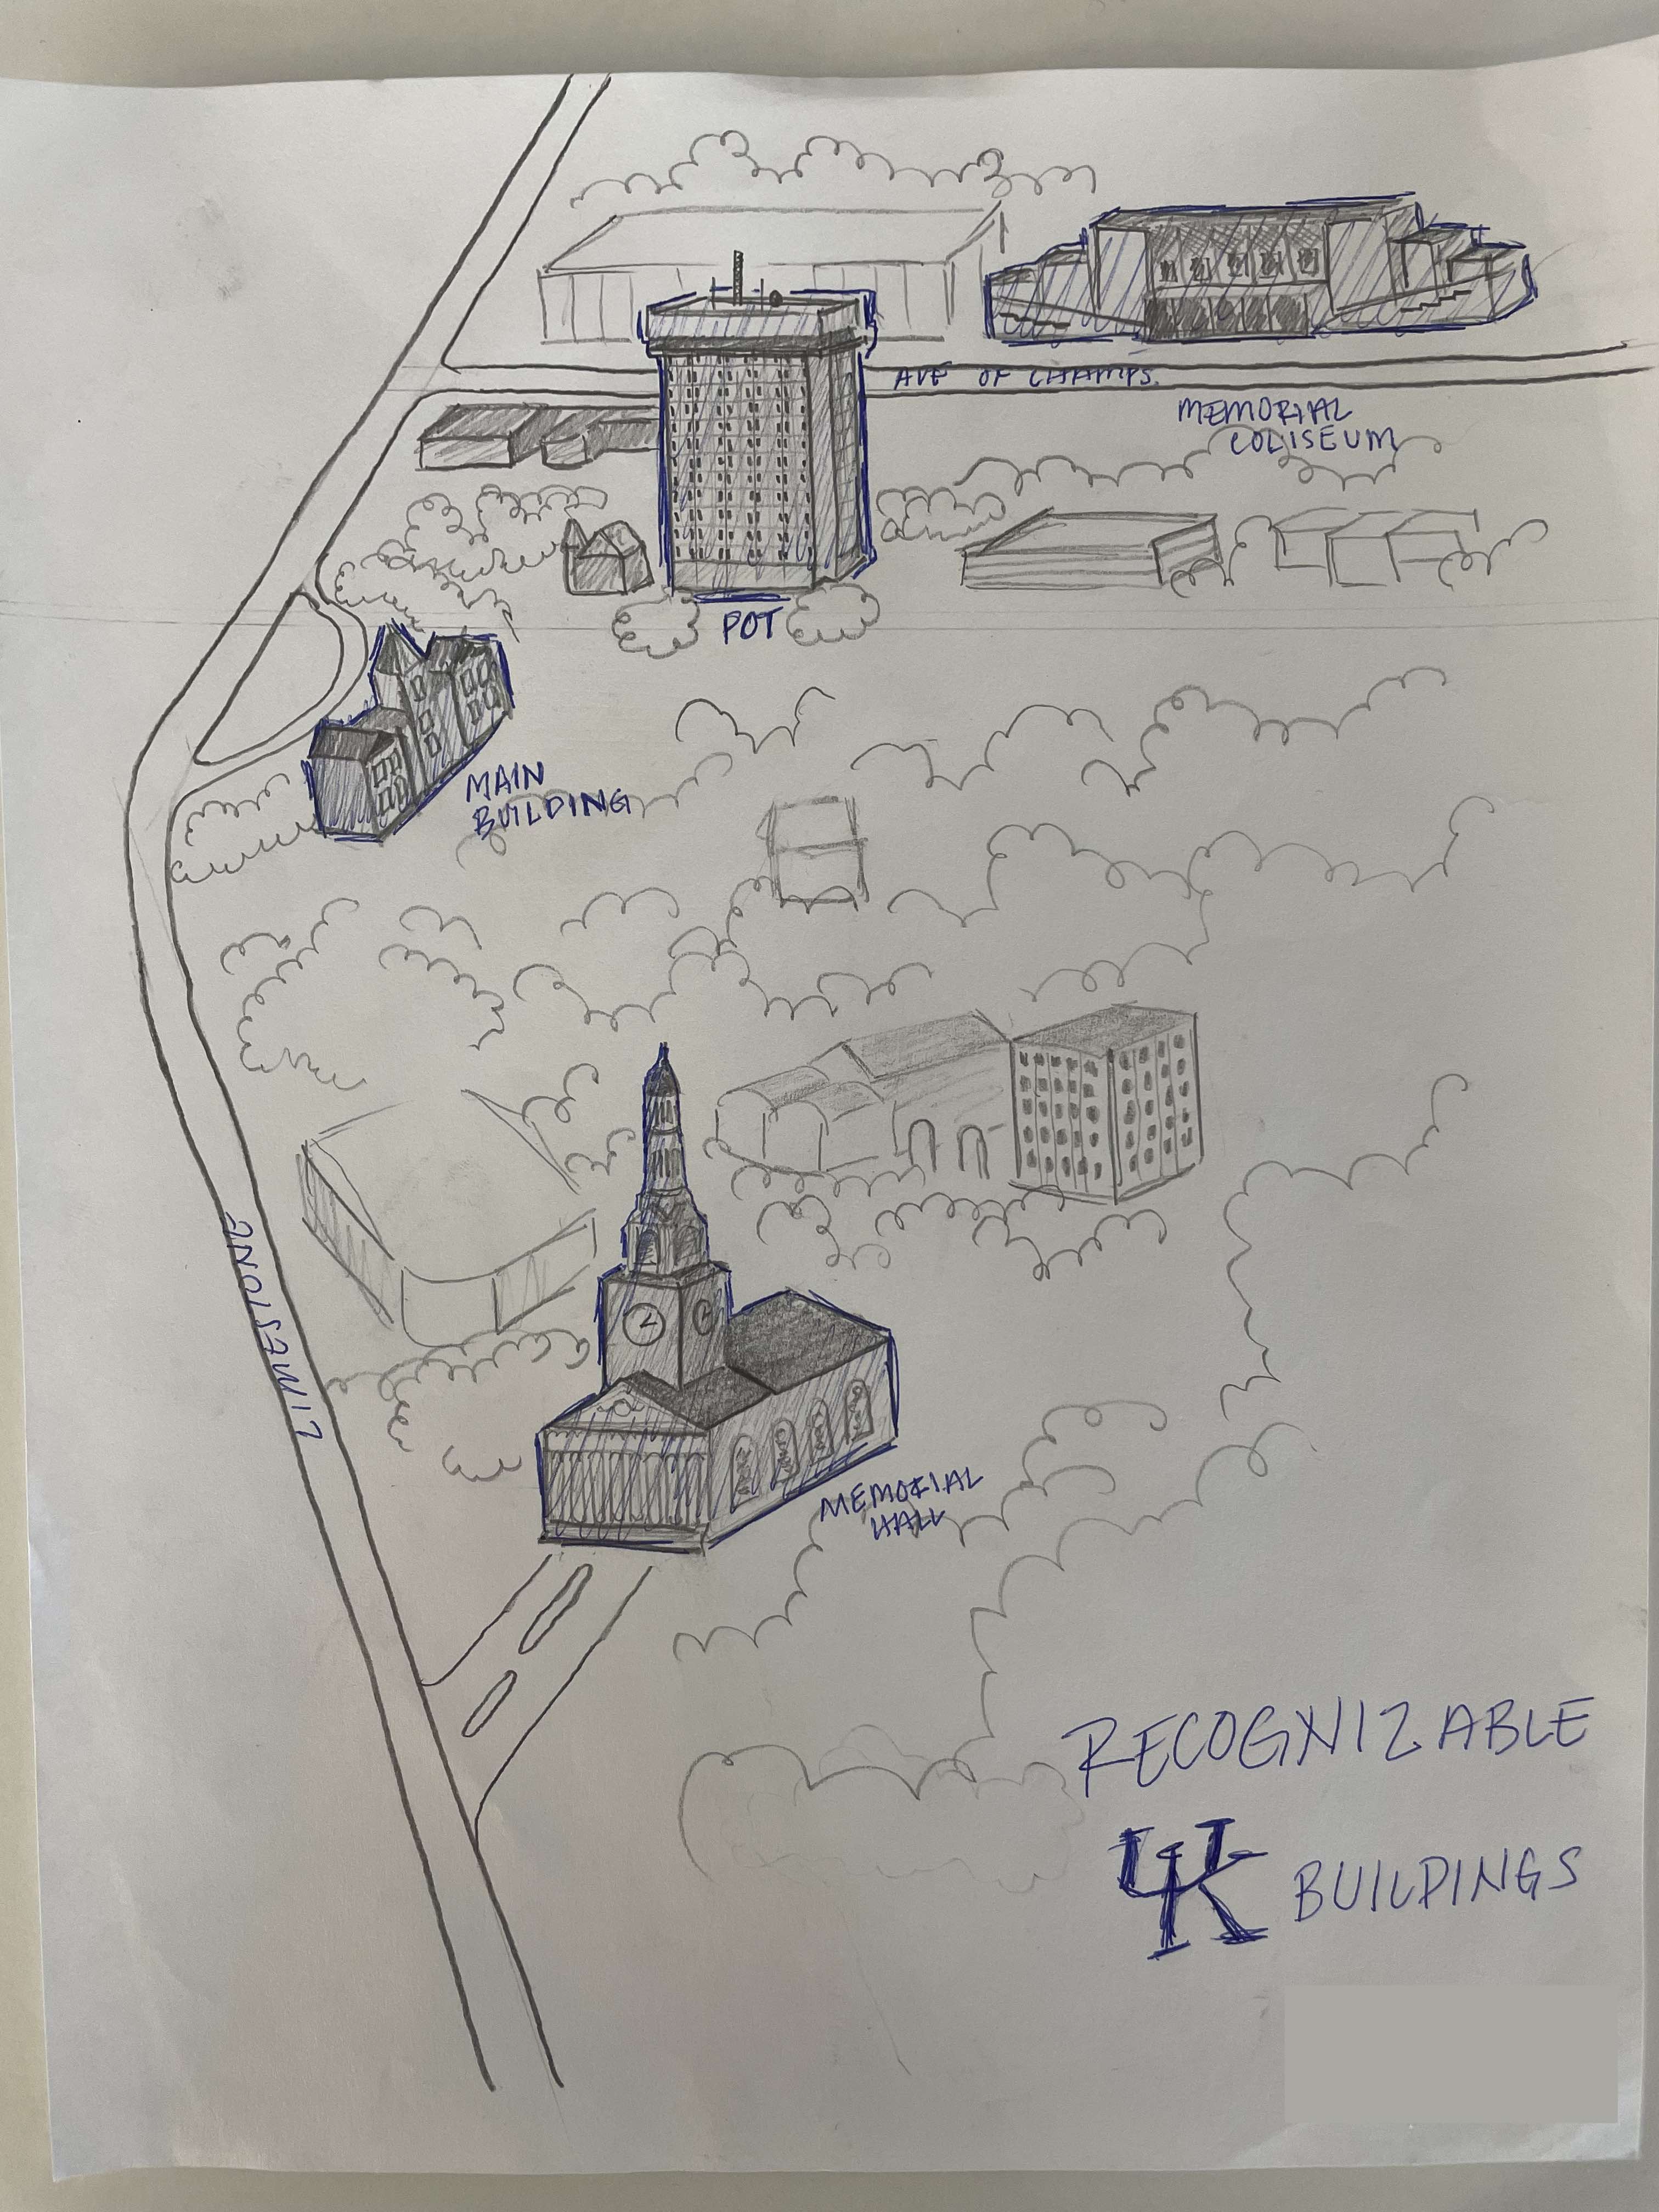 AVE OF CHAMPS.
MEMORIAL
COLISEUM
POT
MAIN
BUILDING
LIMESTONE
MEMORIAL
HALL
RECOGNIZABLE
UK BUILDINGS